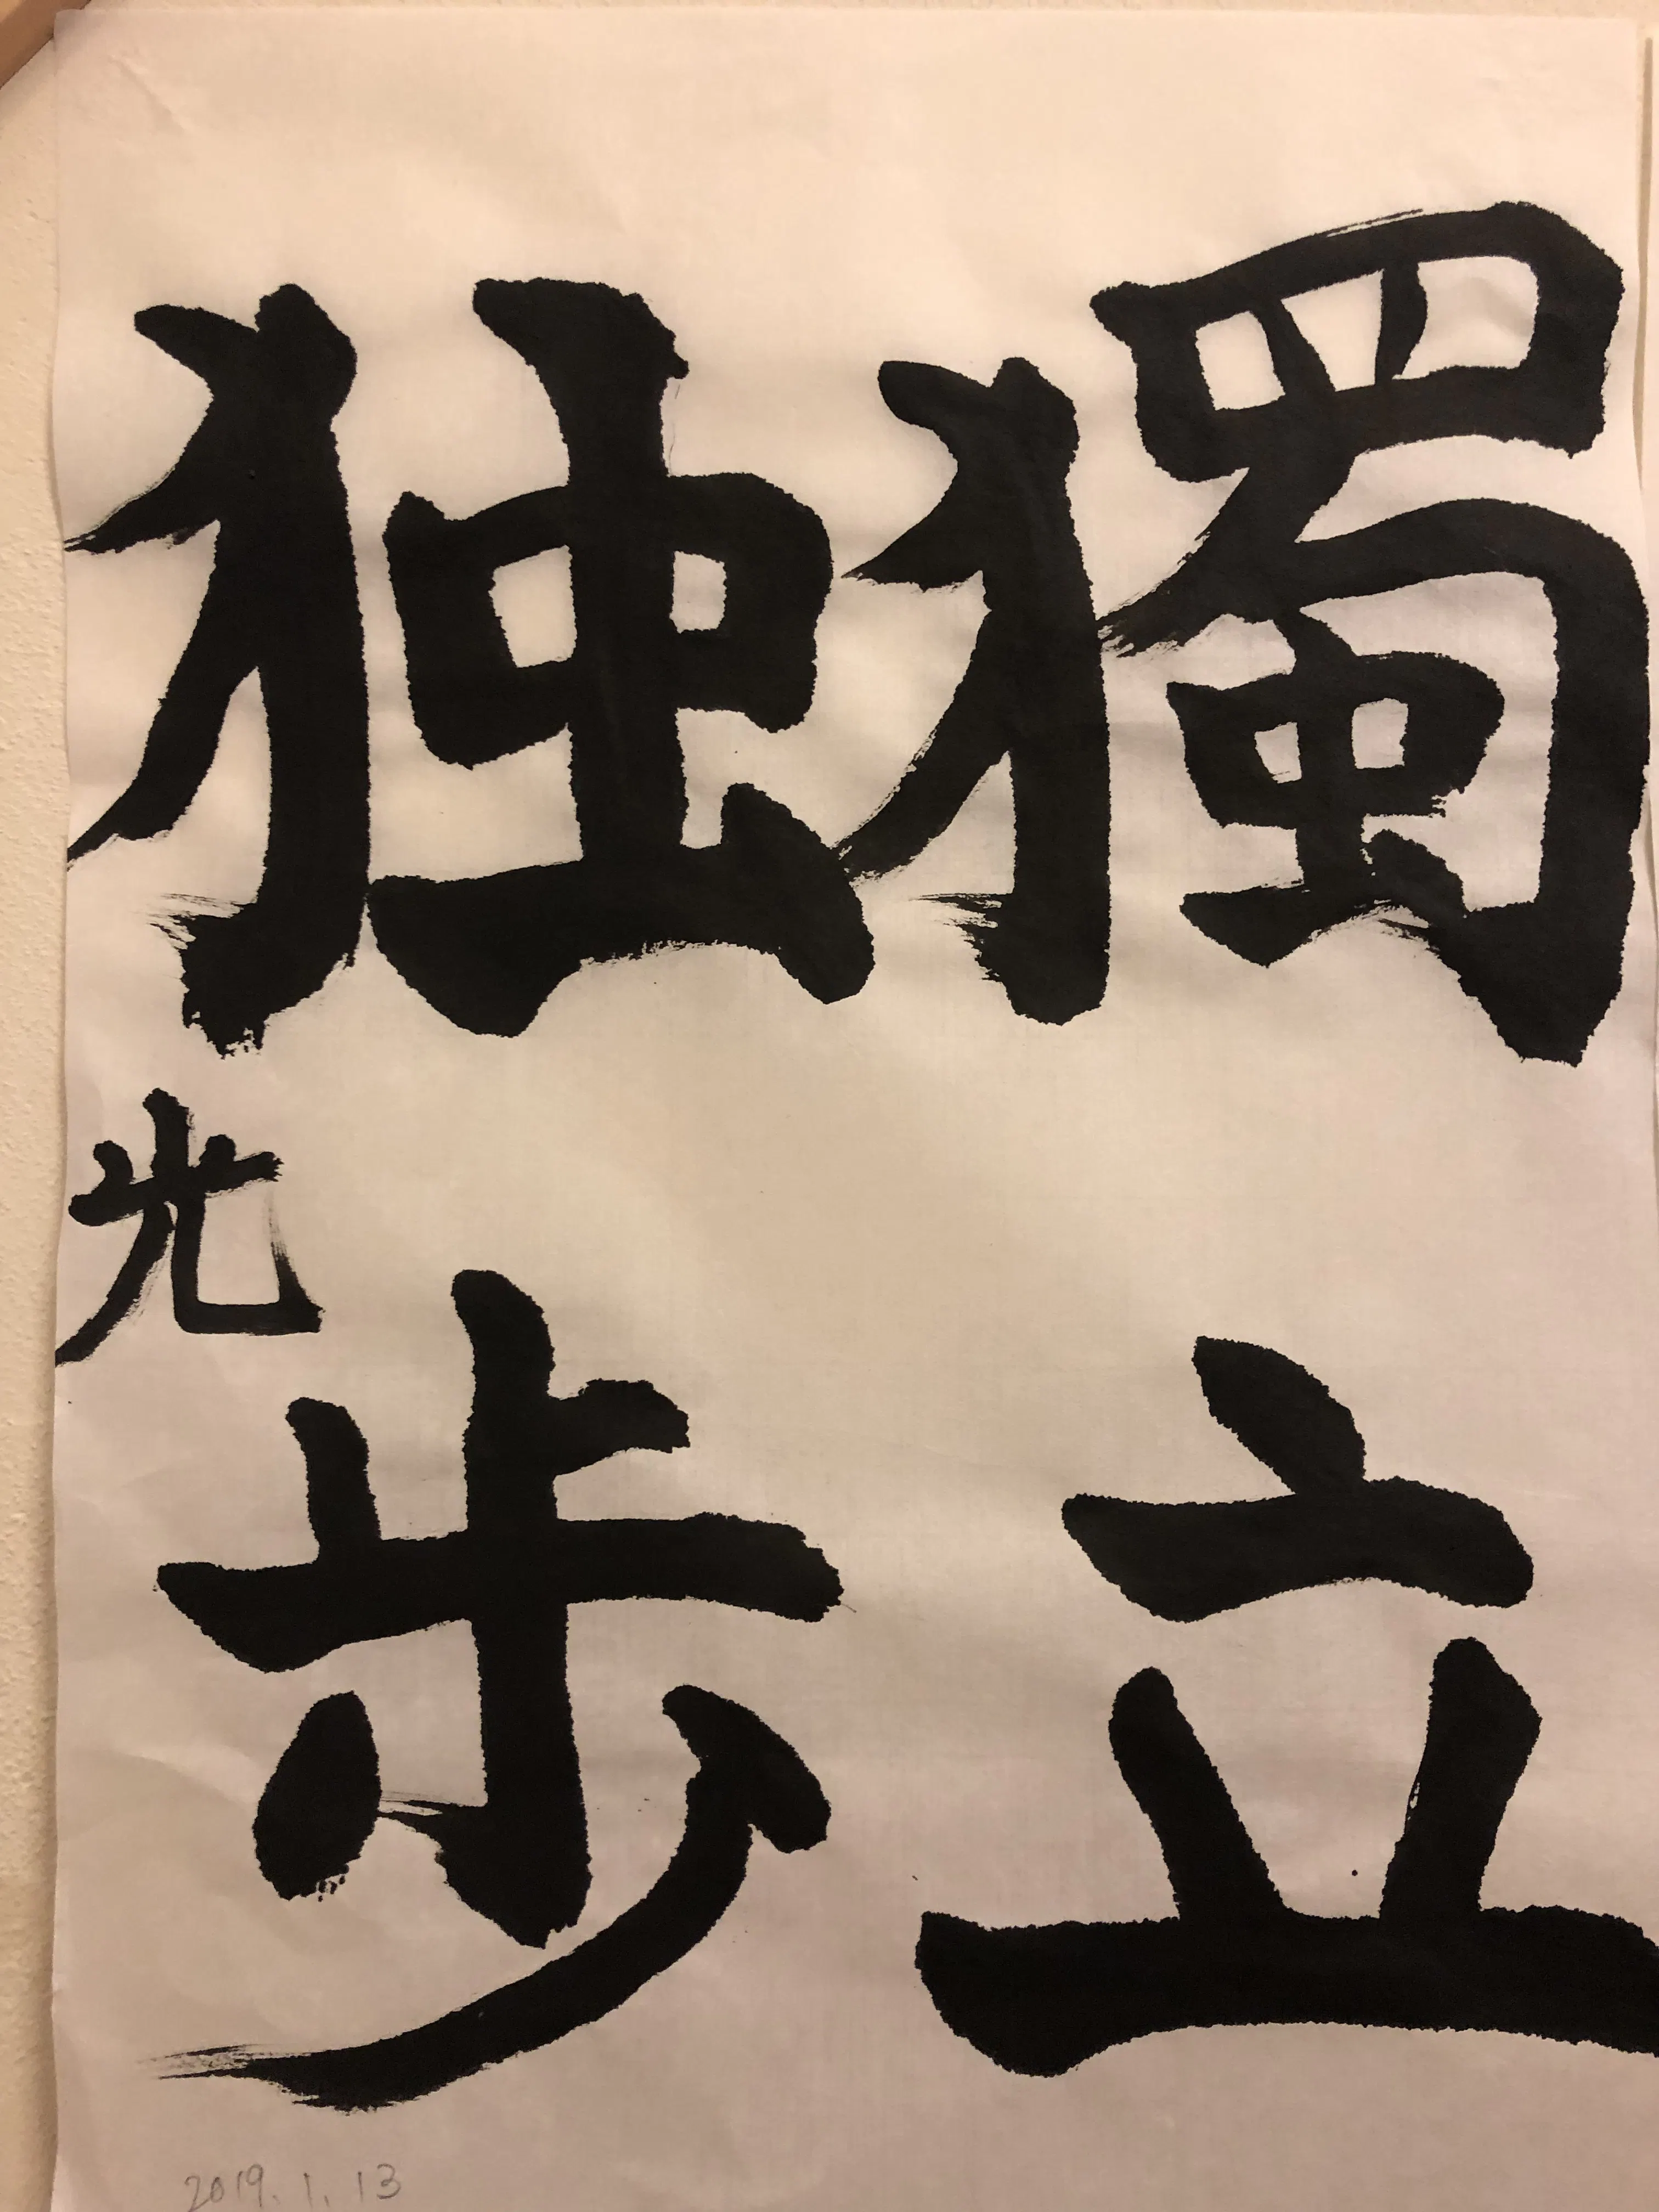 獨立
独歩
光
2019.1.13